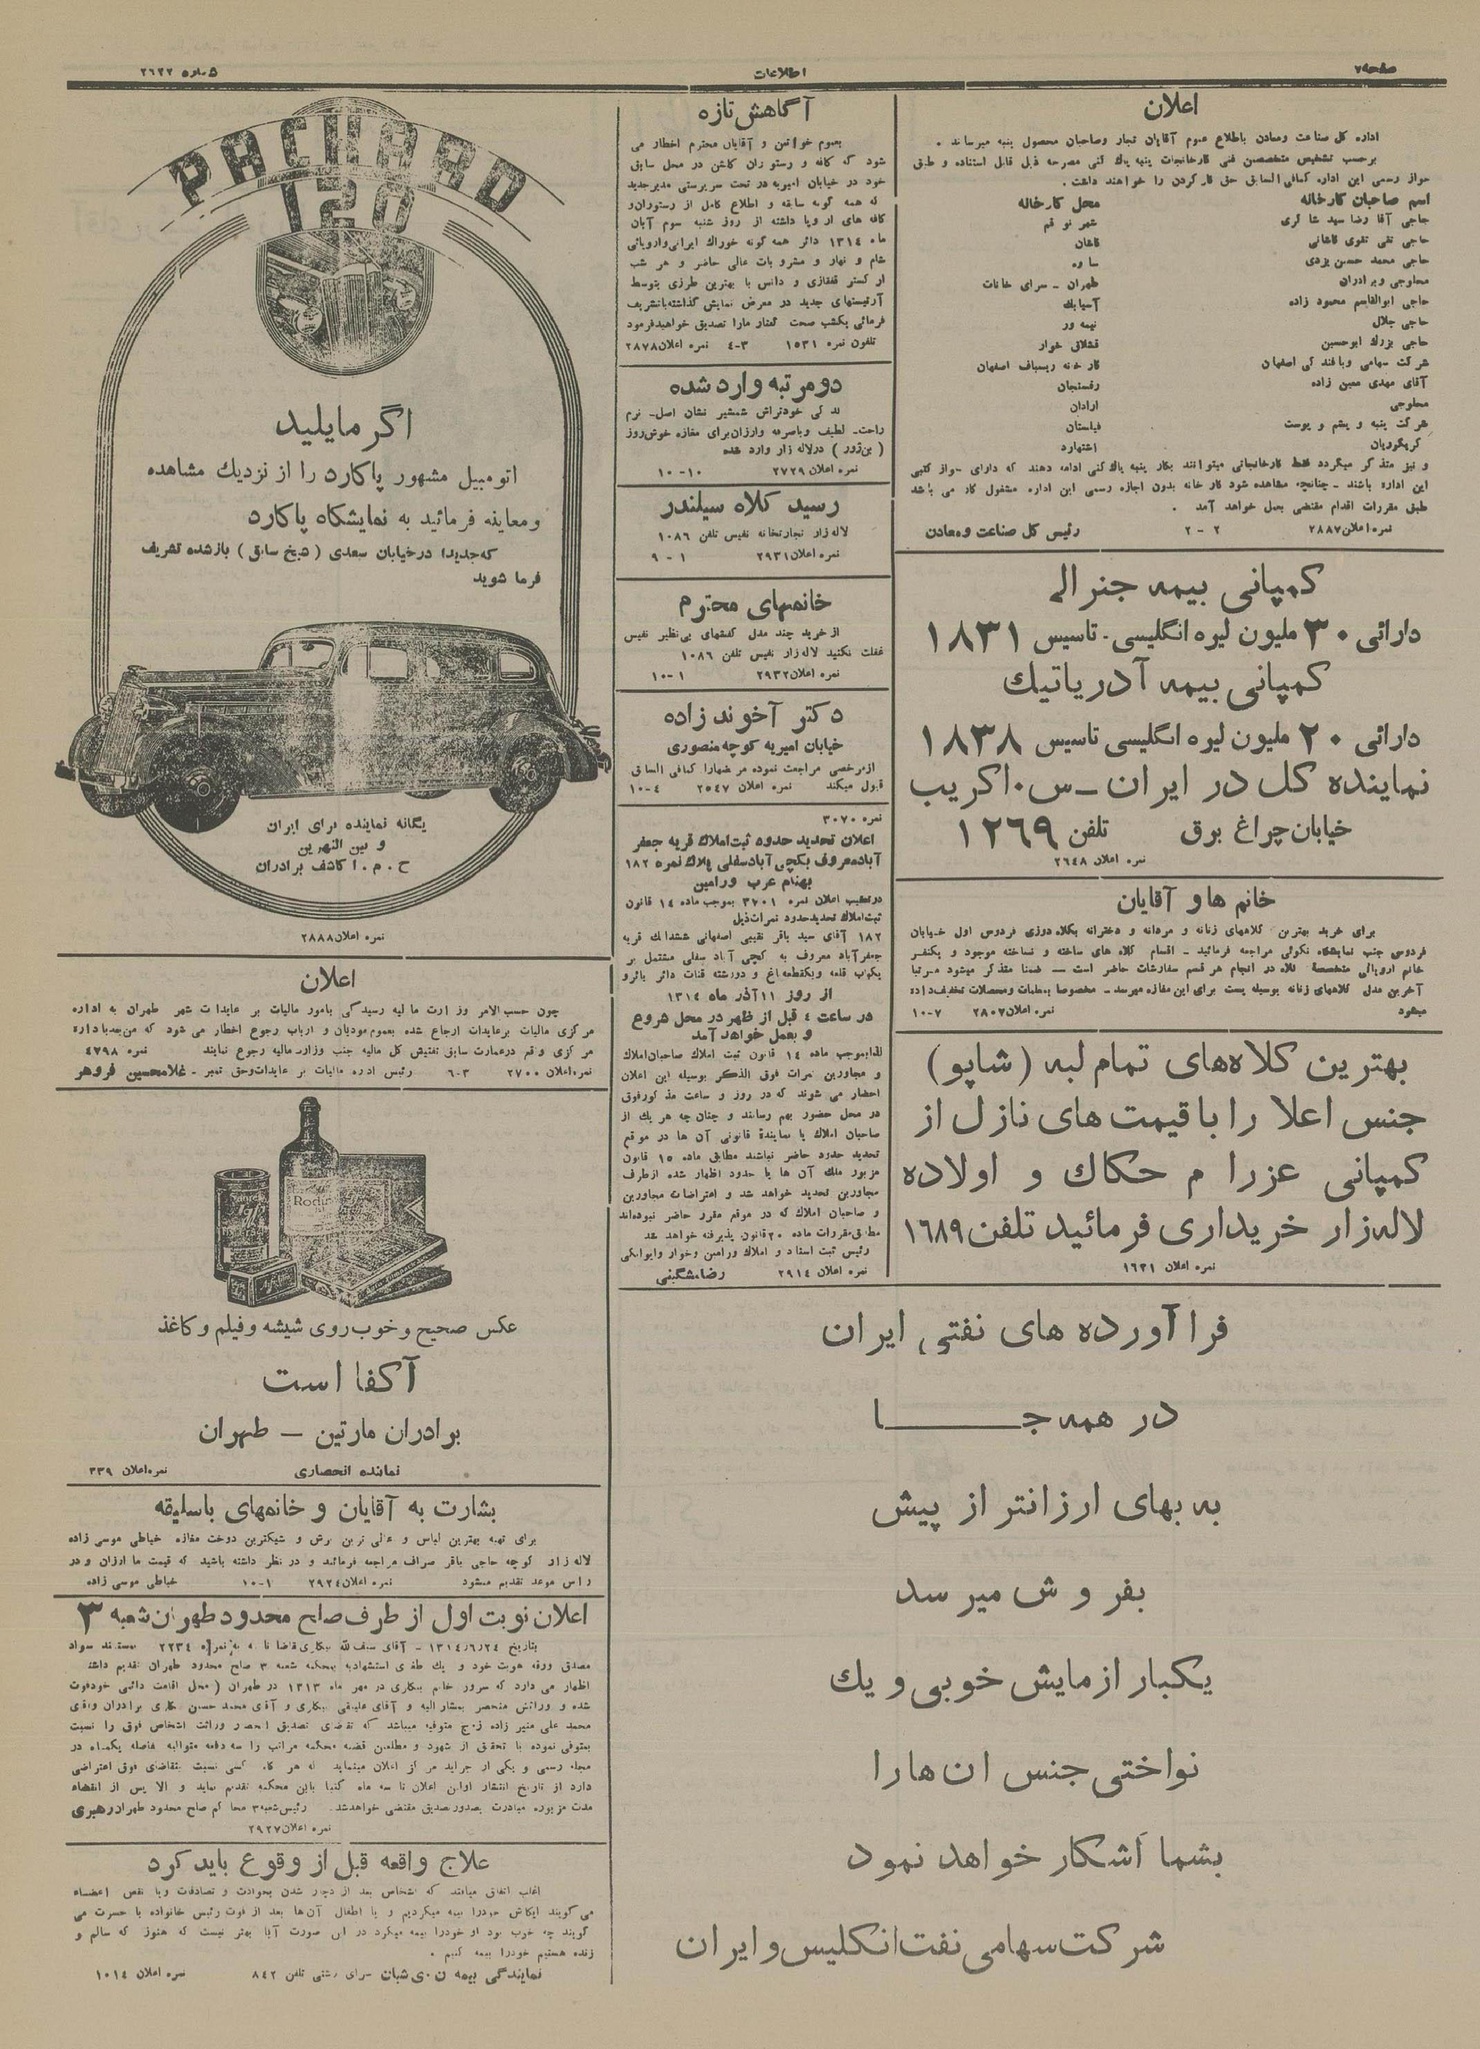 صفحه ۷
اطلاعات
شماره ۲۶۲۲
اعلان
اداره کل صناعت ومعادن باطلاع عموم آقایان تجار وصاحبان محصول پنبه میرساند .
برحسب تشخیص متخصصین فنی کارخانجات پنبه پاك کنی مصرحه ذیل قابل استفاده و طبق
جواز رسمی این اداره کمافی السابق حق کار کردن را خواهند داشت.
اسم صاحبان کارخانه محل کارخانه
حاجی آقا رضا سید شاکری شهر نو قم
حاجی تقی نقوی کاشانی کاشان
حاجی محمد حسین یزدی ساوه
معلوجی وبرادران طهران ـ سرای خانات
حاجی ابوالقاسم محمود زاده آسیابك
حاجی جلال نیمه ور
حاجی بزرك ابوحسین قشلاق خوار
شرکت سهامی وبافندگی اصفهان کارخانه ریسباف اصفهان
آقای مهدی معین زاده رفسنجان
معلوجی ارادان
شرکت پنبه و پشم و پوست فیلستان
گریگوریان اشتهارد
و نیز متذکر میگردد فقط کارخانجاتی میتوانند بکار پنبه پاك کنی ادامه دهند که دارای جواز کتبی
این اداره باشند ـ چنانچه مشاهده شود کارخانه بدون اجازه رسمی این اداره مشغول کار می باشد
طبق مقررات اقدام مقتضی بعمل خواهد آمد .
نمره اعلان ۲۸۸۷ ۲ - ۲ رئیس کل صناعت ومعادن
کمپانی بیمه جنرال
دارائی ۳۰ ملیون لیره انگلیسی - تاسیس ۱۸۳۱
کمپانی بیمه آدریاتیك
دارائی ۲۰ ملیون لیره انگلیسی تاسیس ۱۸۳۸
نماینده کل در ایران ـ س.اکریب
خیابان چراغ برق تلفن ۱۲۶۹
نمره اعلان ۲۶۴۸
خانم ها و آقایان
برای خرید بهترین کلاههای زنانه و مردانه و دخترانه بکلاه دوزی فردوس اول خیابان
فردوسی جنب نمایشگاه نکوئی مراجعه فرمائید ـ اقسام کلاه های ساخته و نساخته موجود و یکنفر
خانم اروپائی متخصصه کلاه در انجام هر قسم سفارشات حاضر است — ضمنا متذکر میشود مرتبا
آخرین مدل کلاههای زنانه بوسیله پست برای این مغازه میرسد ـ مخصوصا بمعلمات ومحصلات تخفیف داده
میشود نمره اعلان ۲۸۰۷ ۷-۱۰
بهترین کلاه‌های تمام لبه (شاپو)
جنس اعلا را با قیمت های نازل از
کمپانی عزرا م حکاك و اولاده
لاله‌زار خریداری فرمائید تلفن ۱۶۸۹
نمره اعلان ۱۶۲۱
آگاهش تازه
بعموم خواتین و آقایان محترم اخطار می
شود که کافه و رستوران کاشن در محل سابق
خود در خیابان امیریه در تحت سرپرستی مدیر جدید
که همه گونه سابقه و اطلاع کامل از رستوران و
کافه های اروپا داشته از روز شنبه سوم آبان
ماه ۱۳۱۴ دائر همه گونه خوراك ایرانی واروپائی
شام و نهار و مشروبات عالی حاضر و هر شب
ارکستر قفقازی و دانس با بهترین طرزی بتوسط
آرتیستهای جدید در معرض نمایش گذاشته باتشریف
فرمائی یکشب صحت گفتار مارا تصدیق خواهید فرمود
تلفون نمره ۱۵۳۱ ۳-۴ نمره اعلان ۲۸۷۸
دومرتبه وارد شده
تدکی خودتراش شمشیر نشان اصل ـ نرم
راحت ـ لطیف وباصرفه وارزان برای مغازه خوش روز
( بن ژور ) در لاله زار وارد شده
نمره اعلان ۲۷۲۹ ۱۰-۱۰
رسید کلاه سیلندر
لاله زار تجارتخانه نفیس تلفن ۱۰۸۶
نمره اعلان ۲۹۳۱ ۱ - ۹
خانمهای محترم
از خرید چند مدل کفشهای بی نظیر نفیس
غفلت نکنید لاله زار نفیس تلفن ۱۰۸۶
نمره اعلان ۲۹۳۲ ۱-۱۰
دکتر آخوند زاده
خیابان امیریه کوچه منصوری
از مرخصی مراجعت نموده مرضهارا کمافی السابق
قبول میکند نمره اعلان ۲۵۴۷ ۴-۱۰
نمره ۳۰۷۰
اعلان تحدید حدود ثبت املاك قریه جعفر
آباد معروف بکچی آباد سفلی پلاك نمره ۱۸۲
بهنام عرب ورامین
در تعقیب اعلان نمره ۳۷۰۱ بموجب ماده ۱۴ قانون
ثبت املاك تحدید حدود نمرات ذیل
۱۸۲ آقای سید باقر نقیبی اصفهانی ششدانك قریه
جعفرآباد معروف به کچی آباد سفلی مشتمل بر
یکباب قلعه ویکقطعه باغ و دورشته قنات دائر بائرو
از روز ۱۱ آذر ماه ۱۳۱۴
در ساعت ۴ قبل از ظهر در محل شروع
و بعمل خواهد آمد
لذا بموجب ماده ۱۴ قانون ثبت املاك صاحبان املاك
و مجاورین نمرات فوق الذکر بوسیله این اعلان
احضار می شوند که در روز و ساعت مذکور فوق
در محل حضور بهم رسانند و چنان چه هر یك از
صاحبان املاك یا نمایندۀ قانونی آن ها در موقع
تحدید حدود حاضر نباشند مطابق ماده ۱۵ قانون
مزبور ملك آن ها با حدود اظهار شده از طرف
مجاورین تحدید خواهد شد و اعتراضات مجاورین
و صاحبان املاك که در موقع مقرر حاضر نبوده‌اند
مطابق مقررات ماده ۲۰ قانون پذیرفته خواهد شد
رئیس ثبت اسناد و املاك ورامین وخوار وایوانکی
نمره اعلان ۲۹۱۴ رضا مشگینی
PACKARD
120
اگر مایلید
اتومبیل مشهور پاکارد را از نزدیك مشاهده
ومعاینه فرمائید به نمایشگاه پاکارد
که جدیدا در خیابان سعدی ( شیخ سابق ) باز شده تشریف
فرما شوید
یگانه نماینده برای ایران
و بین النهرین
ح . م . ا کاشف برادران
نمره اعلان ۲۸۸۸
اعلان
چون حسب الامر وزارت مالیه رسیدگی بامور مالیات بر عایدات شهر طهران به اداره
مرکزی مالیات بر عایدات ارجاع شده بعموم مودیان و ارباب رجوع اخطار می شود که من بعد باداره
مرکزی واقع در عمارت سابق تفتیش کل مالیه جنب وزارت مالیه رجوع نمایند نمره ۴۷۹۸
نمره اعلان ۲۷۰۰ ۳-۶ رئیس اداره مالیات بر عایدات وحق تمبر ـ غلامحسین فروهر
Rodinal
Agfa
عکس صحیح و خوب روی شیشه و فیلم و کاغذ
آکفا است
برادران مارتین — طهران
نماینده انحصاری نمره اعلان ۳۳۹
بشارت به آقایان و خانمهای باسلیقه
برای تهیه بهترین لباس و عالی ترین برش و شیکترین دوخت مغازه خیاطی موسی زاده
لاله زار کوچه حاجی باقر صراف مراجعه فرمائید و در نظر داشته باشید که قیمت ما ارزان و در
راس موعد تقدیم میشود نمره اعلان ۲۹۲۴ ۱-۱۰ خیاطی موسی زاده
اعلان نوبت اول از طرف صلح محدود طهران شعبه ۳
بتاریخ ۱۳۱۴/۶/۲۴ ـ آقای سیف الله بیکاری تقاضا نامه به نمره ۲۲۳۴ بمستند سواد
مصدق ورقه هویت خود و یك طغری استشهادیه بمحکمه شعبه ۳ صلح محدود طهران تقدیم داشته
اظهار می دارد که سرور خانم بیکاری در مهر ماه ۱۳۱۳ در طهران ( محل اقامت دائمی خود فوت
شده و وراثش منحصر بمشارالیه و آقای علینقی بیکاری و آقای محمد حسین بیکاری برادران وآقای
محمد علی منیر زاده زوج متوفیه میباشد که تقاضای تصدیق انحصار وراثت اشخاص فوق را نسبت
بمتوفی نموده با تحقیق از شهود و مطلعین قضیه محکمه مراتب را سه دفعه متوالیه بفاصله یکماه در
مجله رسمی و یکی از جراید مرکز اعلان مینماید که هر گاه کسی نسبت بتقاضای فوق اعتراضی
دارد از تاریخ انتشار اولین اعلان تا سه ماه کتبا باین محکمه تقدیم نماید و الا پس از انقضاء
مدت مزبوره مبادرت بصدور تصدیق مقتضی خواهد شد. رئیس شعبه ۳ محاکم صلح محدود طهران رهبری
نمره اعلان ۲۹۲۷
علاج واقعه قبل از وقوع باید کرد
اغلب اتفاق میافتد که اشخاص بعد از دچار شدن بحوادث و تصادفات ویا نقص اعضاء
می گویند ایکاش خودرا بیمه میکردیم و یا اطفال آن ها بعد از فوت رئیس خانواده با حسرت می
گویند چه خوب بود او خودرا بیمه میکرد در این صورت آیا بهتر نیست که هنوز که سالم و
زنده هستیم خودرا بیمه کنیم .
نمایندگی بیمه ن . ی شبان سرای رشتی تلفن ۸۴۲ نمره اعلان ۱۰۱۴
فرا آورده های نفتی ایران
در همه جــــا
به بهای ارزانتر از پیش
بفروش میرسد
یکبار ازمایش خوبی و یك
نواختی جنس ان ها را
بشما آشکار خواهد نمود
شرکت سهامی نفت انگلیس و ایران